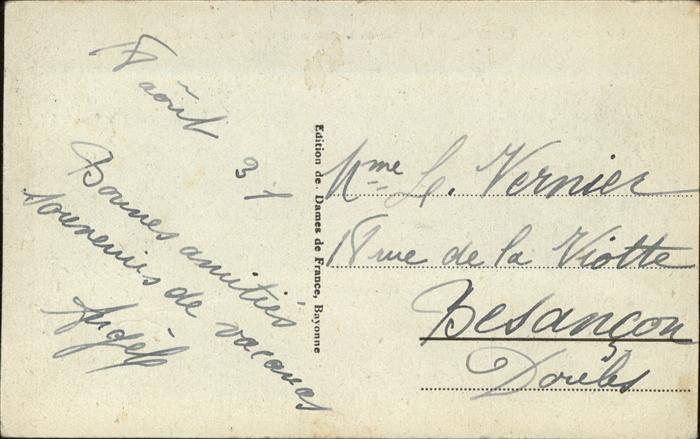 8 août 31
Bonnes amitiés
souvenirs de vacances
Angèle
Edition de Dames de France, Bayonne
Mme L. Vernier
8 rue de la Viotte
Besançon
Doubs